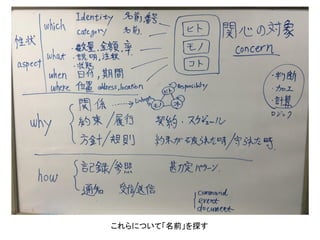 性状
aspect
which Identity 名前、番号
category 名前
what 数量、金額、率
説明、注釈
状態
when 日付、期間
where 位置 address, location
ヒト
モノ
コト
関心の対象
concern
判断
加工
計算
ロジック
why
関係
Responsibility
ヒト
モノ
コト
約束/履行 契約・スケジュール
方針/規則 約束が破られた時/守られた時
how
記録/参照
通知 受信/送信
command
event
document
これらについて「名前」を探す